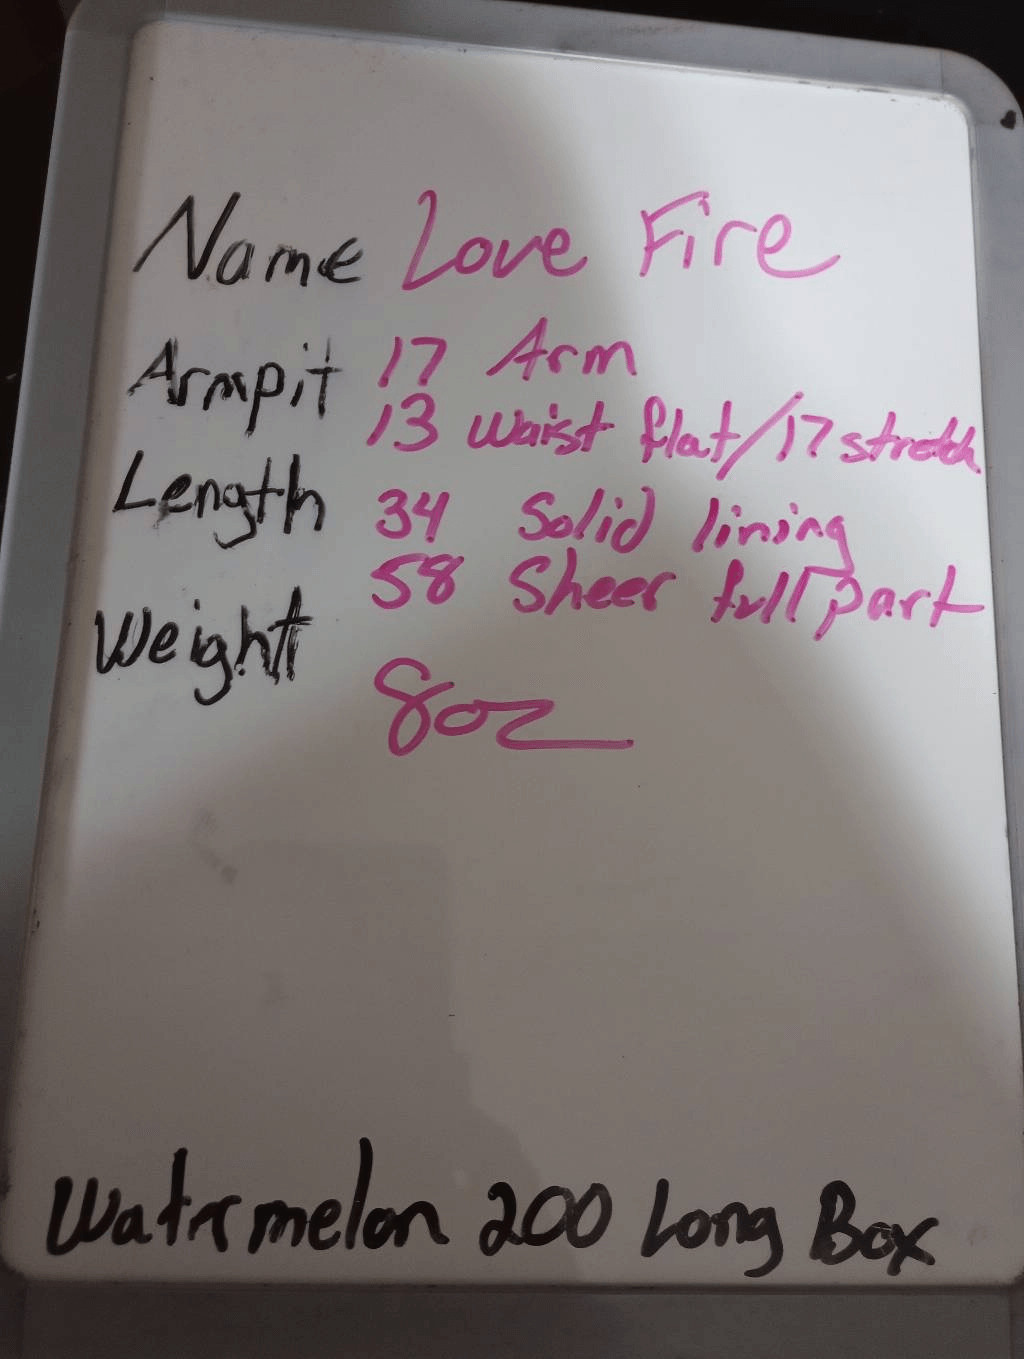 Name Love Fire
Armpit 17 Arm
13 waist flat/17 stretch
Length 34 Solid lining
58 Sheer full part
Weight 8oz
Watermelon 200 Long Box